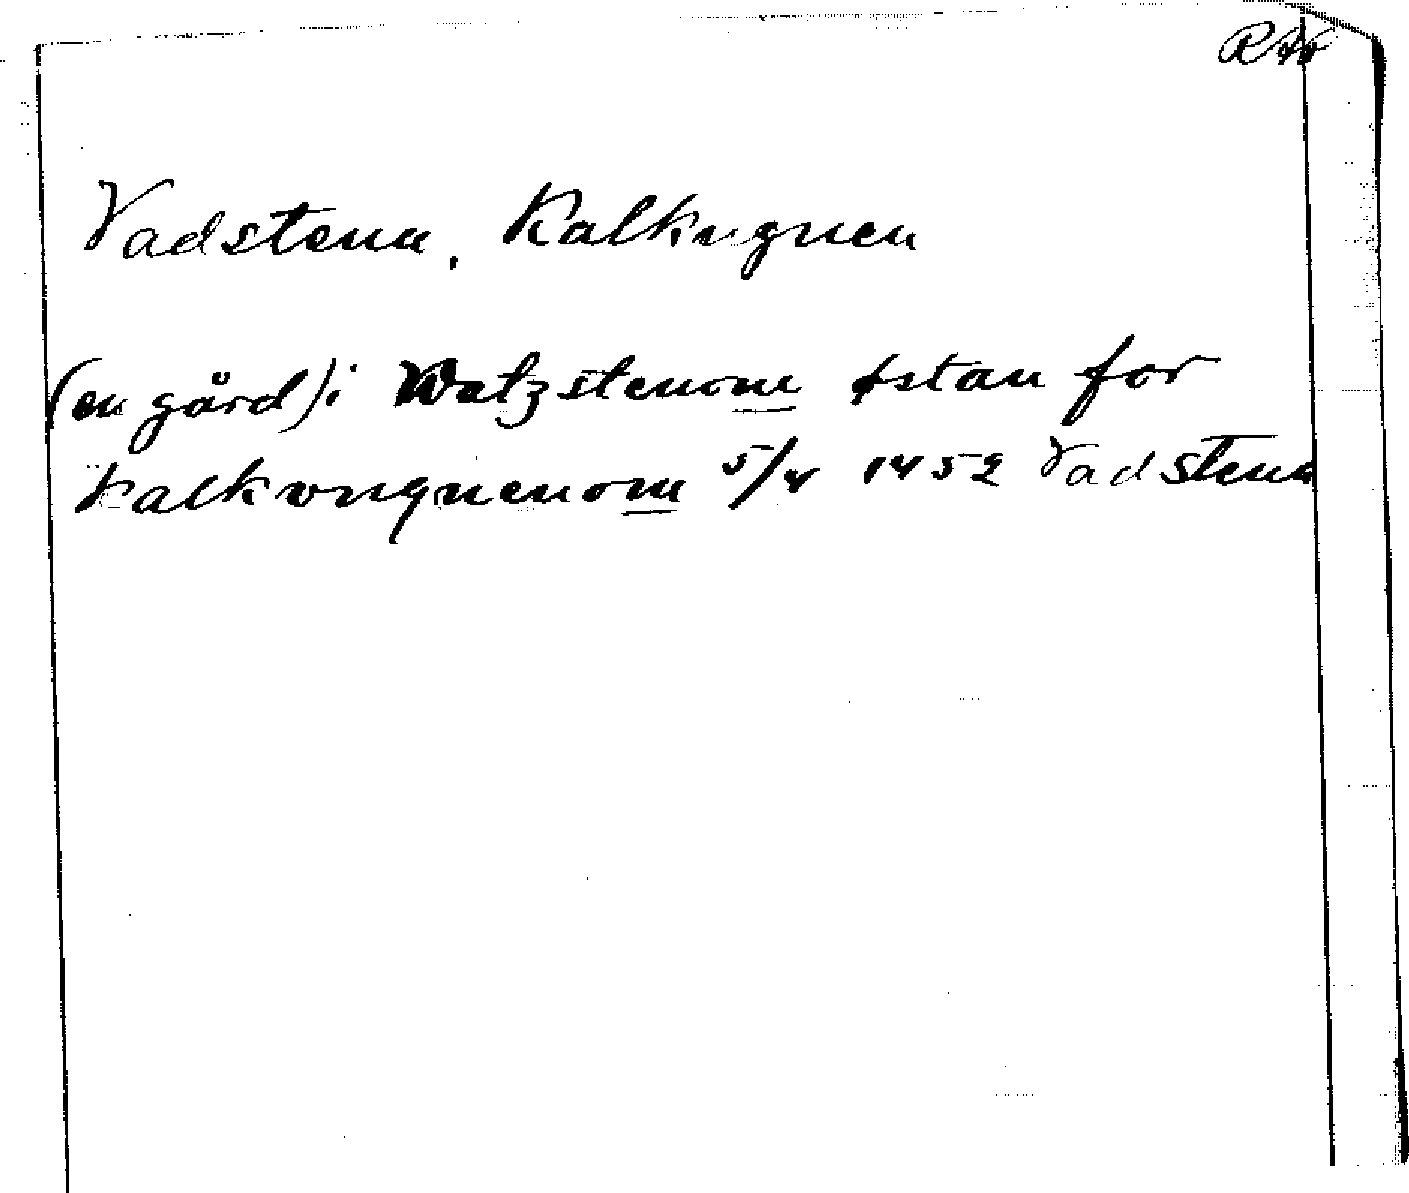 Vadstena, Kalkugnen
(en gård) i Watzstenom østan for
kalkvngnenom 5/4 1452 Vadstena